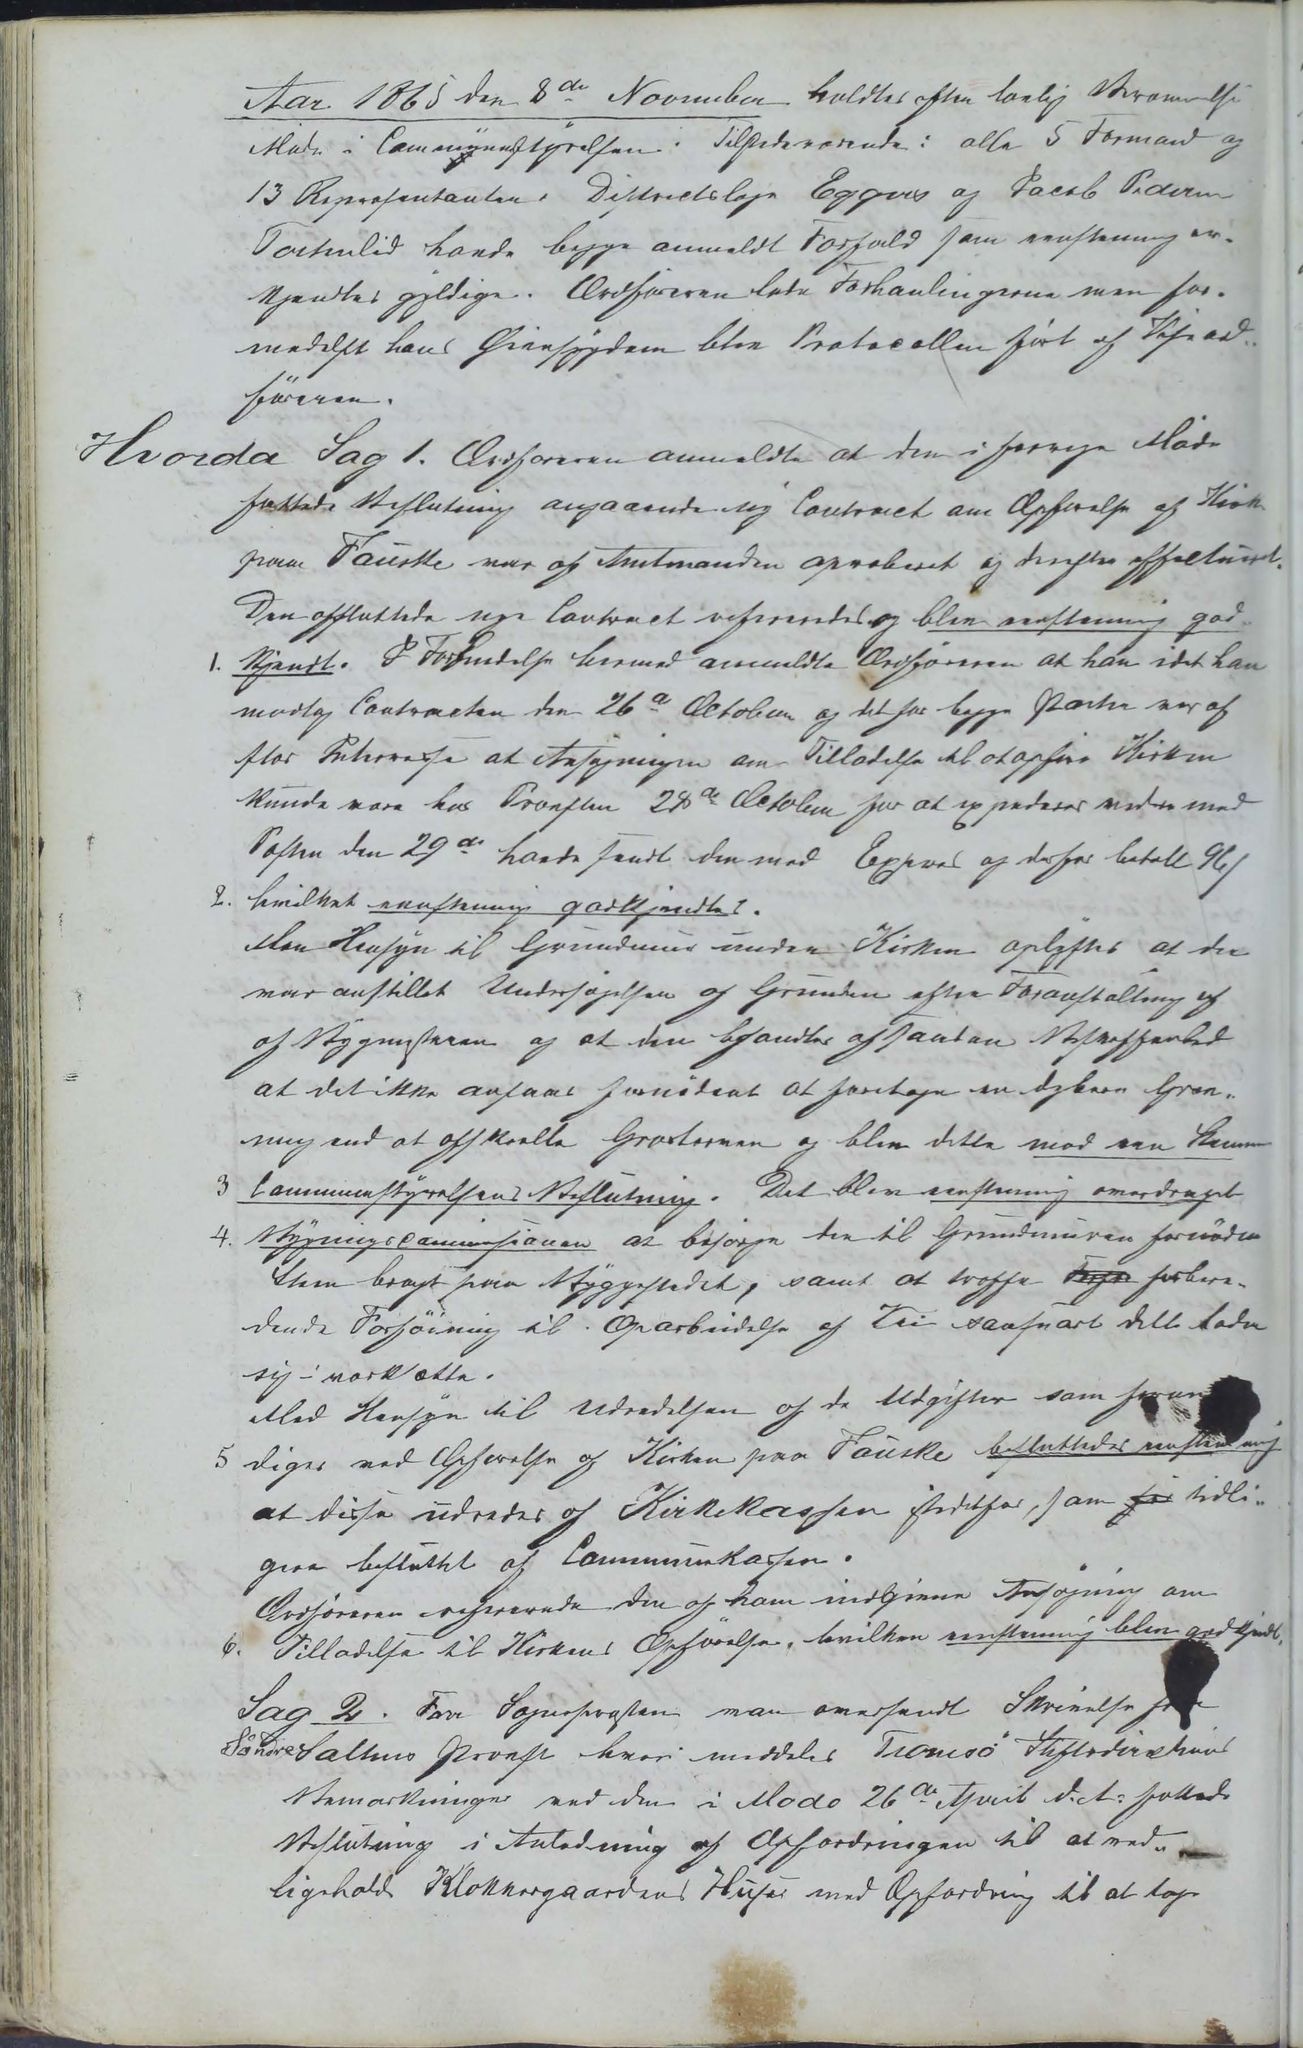 Aar 1865 den 8de November holdtes efter lovlig Berammelse
Møde i Communestÿrelsen. Tilstedeværende: alle 5 Formænd og
13 Repræsentanter. Districtslæge Eggers og Jacob Pedersen
Tortenlid havde begge anmeldt Forfald som eenstemmig er-
kjendtes gyldige. Ordføreren ledte Forhandlingerne men for-
medelst hans Øiensygdom blev Protocollen ført af Viseord-
føreren.
Hvorda Sag 1. Ordføreren anmeldte at den i forrige Møde
fattede Beslutning angaaende ny Contract om Opførelse af Kirke
paa Fauske var af Amtmanden aproberet og derefter effectueret.
Den afsluttede nye Contract refereredes og blev eenstemmig god-
1. kjendt. I Forbindelse hermed anmeldte Ordføreren at han idet han
modtog Contracten den 26de October og det for begge Parter var af
stor Interesse at Ansøgningen om Tilladelse til at opføre Kirken
kunde være hos Provsten 28de October for at expederes videre med
Posten den 29de havde sendt den med Expres og derfor betalt 96 s
2. hvilket eenstemmig godkjendtes.
Med Hensyn til Grundmur under Kirken oplystes at der
var anstillet Undersøgelser af Grunden efter Foranstaltning af
af Bygmesteren og at den befandtes af saadan Beskaffenhed
at det ikke ansaaes fornødent at foretage en dybere Grav-
ning end at afskrælle Grøstorven og blev dette mod een Stemme
3 Communestyrelsens Beslutning. Det blev eenstemmig overdraget
4. Bygningscommissionen at besørge den til Grundmuren fornødne
Steen bragt paa Byggestedet, samt at træffe forbere-
dende Forføining til Oparbeidelse af Vei saasnart dette lader
sig iværksætte.
Med Hensyn til Udredelsen af de Udgifter som
5 diges ved Opførelse af Kirken paa Fauske besluttedes eenstemmig
at disse udredes af Kirkekassen istedetfor, som før tidli-
gere besluttet af Communekassen.
Ordføreren refererede den af ham indgivne Ansøgning om
6. Tilladelse til Kirkens Opførelse, hvilken eenstemmig blev godkjendt.
Sag 2. Fra Sognepresten var oversendt Skrivelse fra
Søndre Saltens Provst hvori meddeles Tromsø Stiftsdirections
Bemærkninger ved den i Møde 26de April d. A. fattede
Beslutning i Anledning af Opfordringen til at ved-
ligeholde Klokkergaardens Huse med Opfordring til at tage